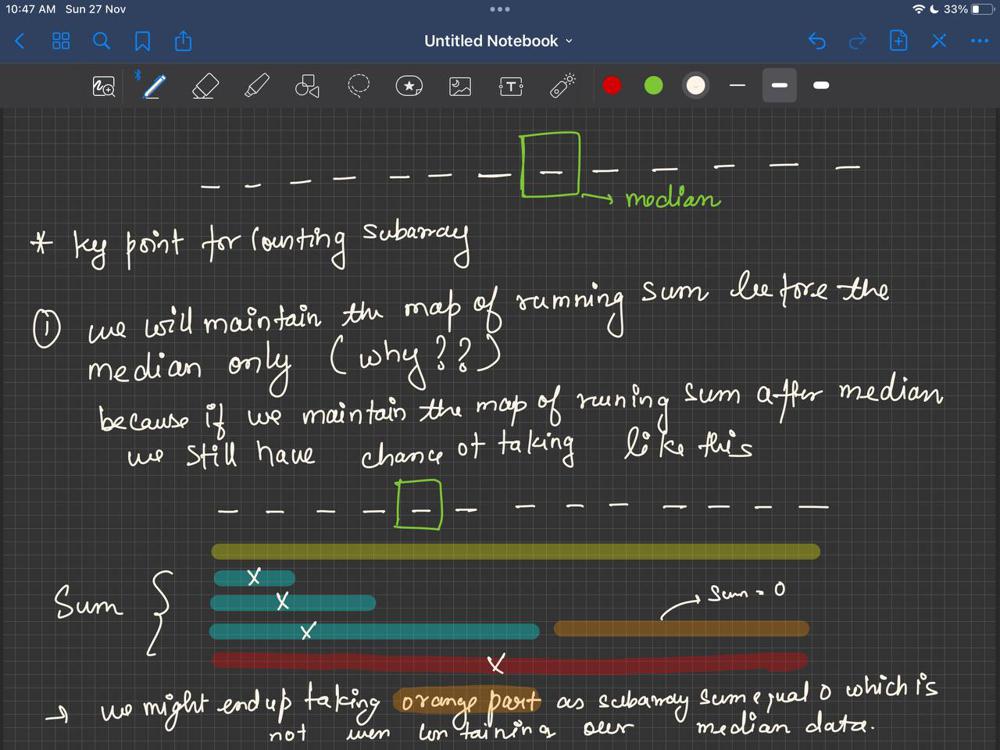 10:47 AM Sun 27 Nov
33%
Untitled Notebook
T
median
* key point for counting subarray
① we will maintain the map of running sum before the
median only (why??)
because if we maintain the map of runing sum after median
we still have chance of taking like this
Sum {
x
x
x
Sum = 0
x
→ we might end up taking orange part as subarray sum equal 0 which is
not even containing our median data.